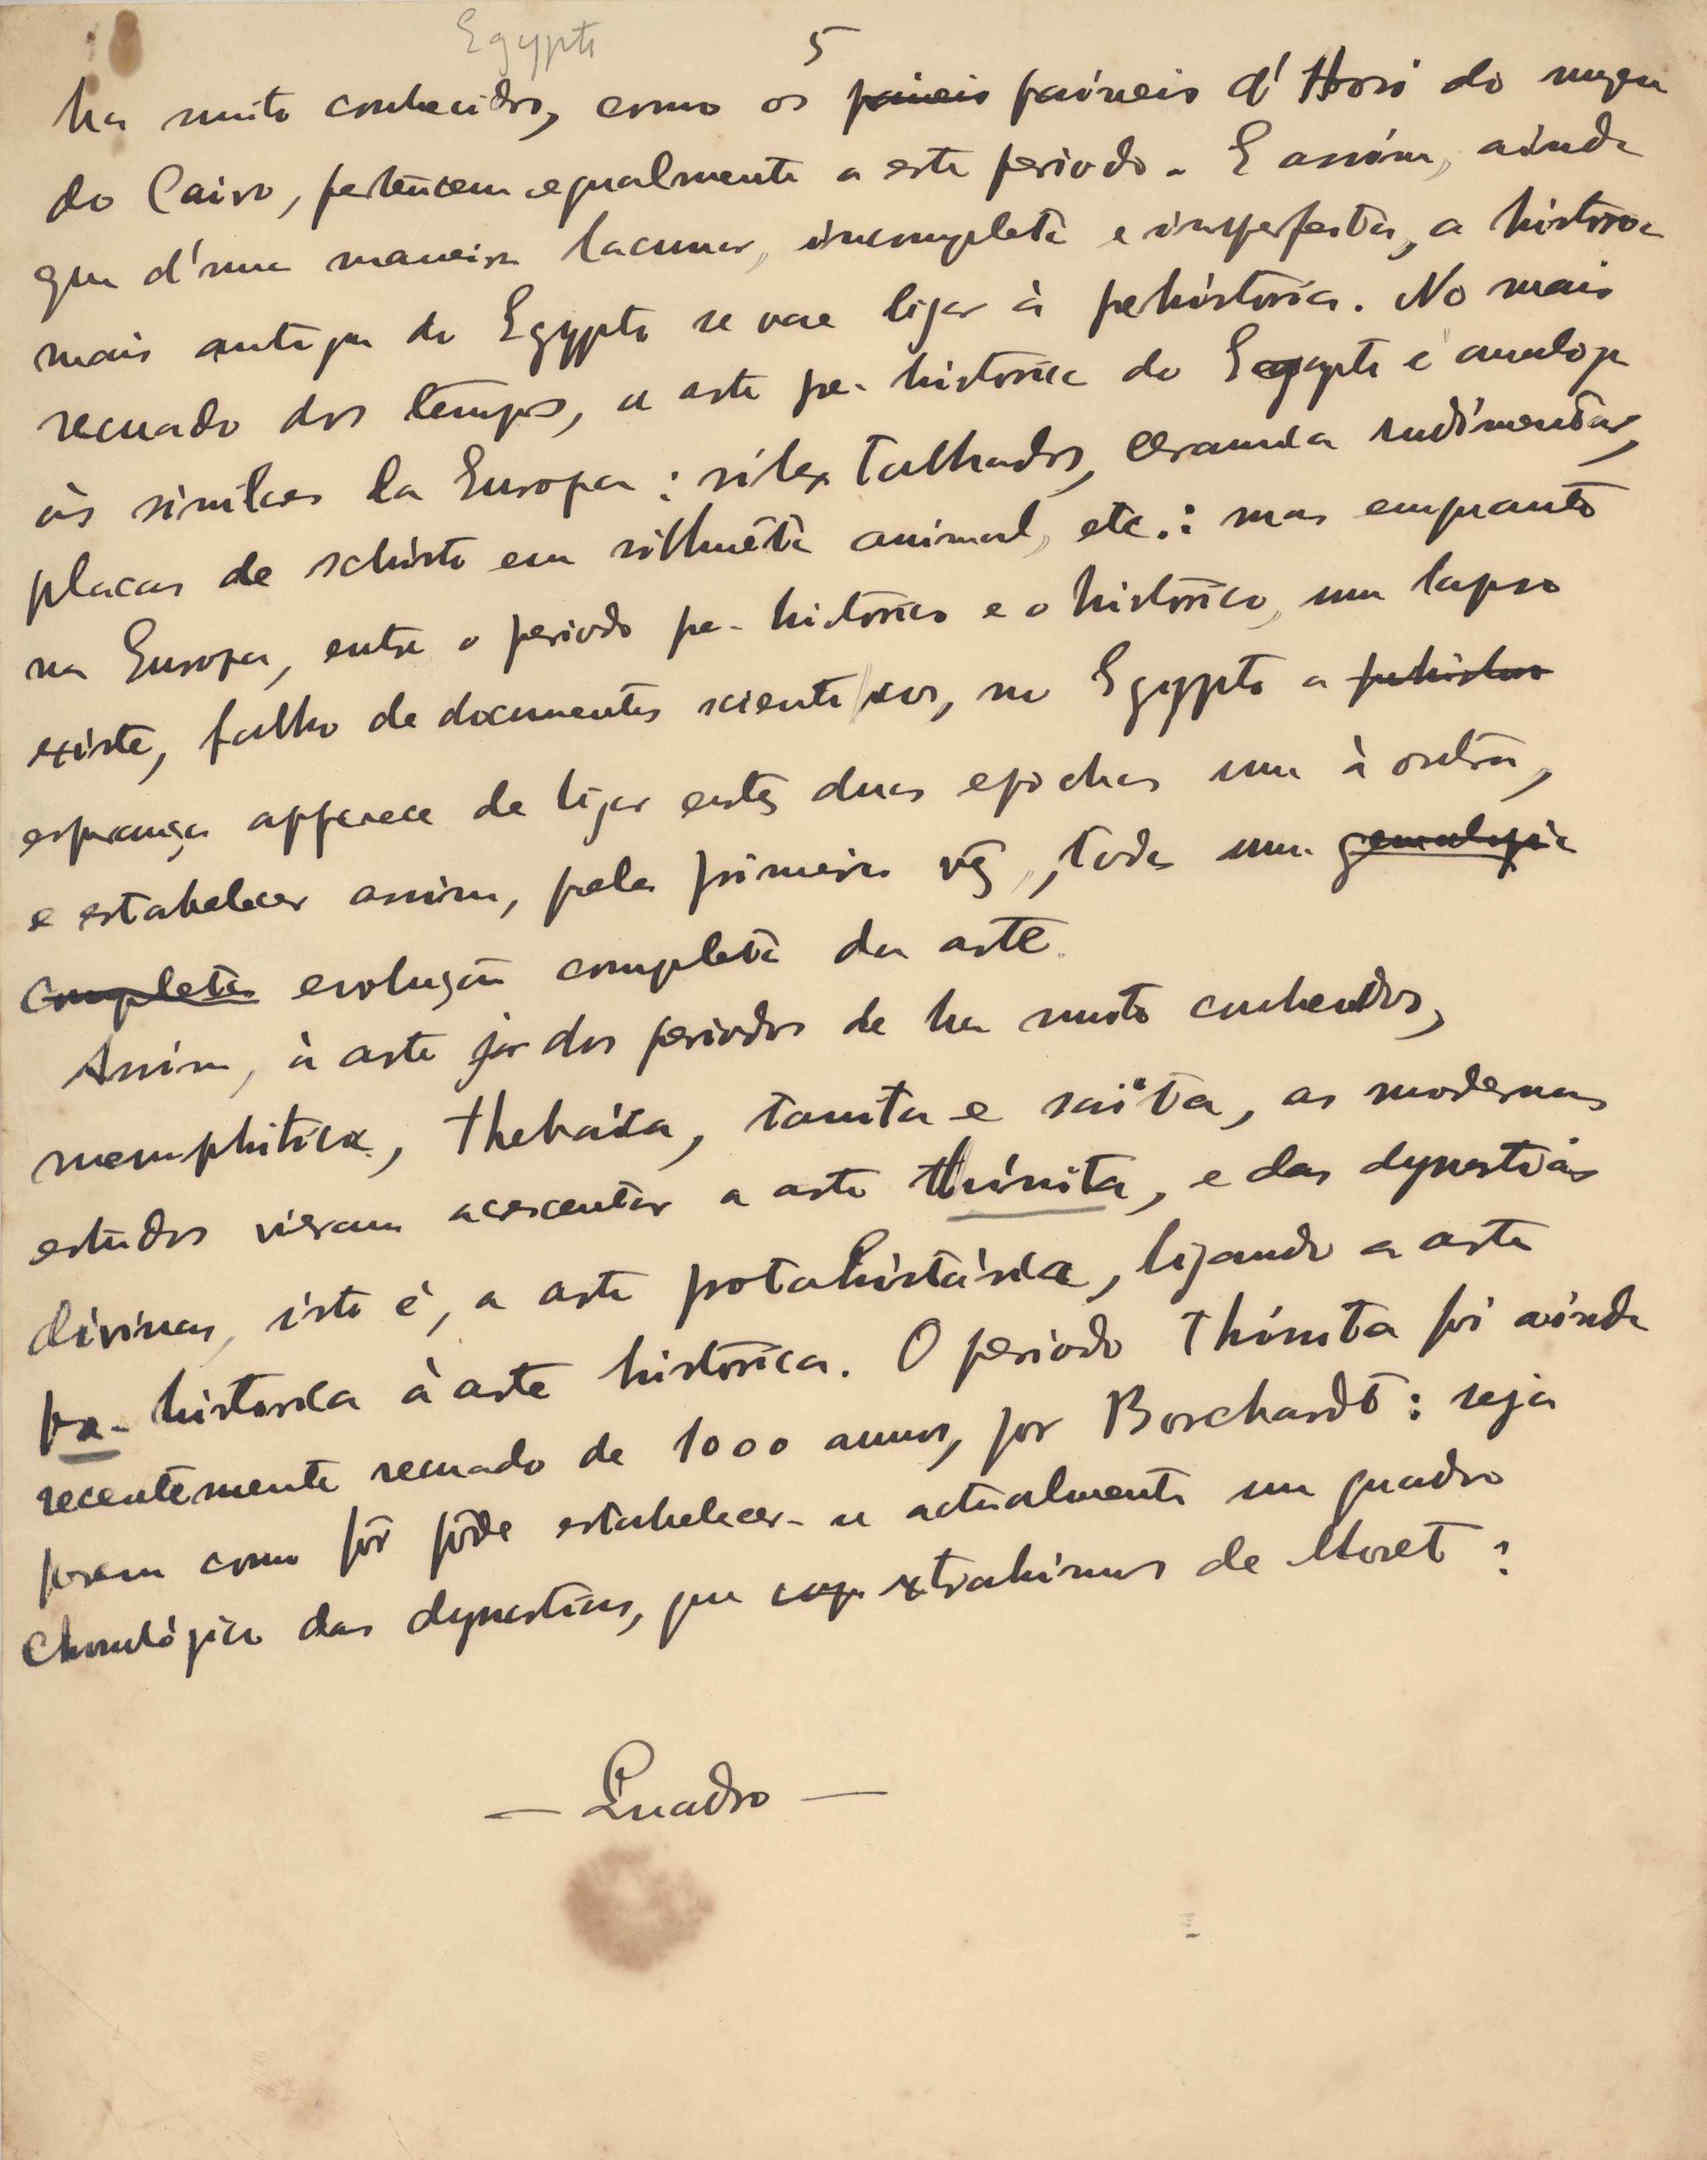 Egypto
5
ha muito conhecidos, como os paineis paineis d'Hosi do museu
do Cairo, pertencem egualmente a este periodo. E assim, ainda
que d'uma maneira lacunar, incompleta e imperfeita, a historia
mais antiga do Egypto se vae ligar à prehistoria. No mais
recuado dos tempos, a arte pre-historica do Egypto é analoga
às similares da Europa: silex talhados, ceramica rudimentar,
placas de schisto em silhuêta animal, etc.: mas emquanto
na Europa, entre o periodo pre-historico e o historico, um lapso
existe, falho de documentos scientificos, no Egypto a prehistor
esperança apparece de ligar estas duas epochas uma à outra,
e estabelecer assim, pela primeira vez, toda uma genealogia
completa evolução completa da arte.
Assim, à arte já dos periodos de ha muito conhecidos,
memphitica, thebaica, tanita e saïta, os modernos
estudos vieram acrescentar a arte thinita, e das dynastias
divinas, isto é, a arte protohistórica, ligando a arte
pre-historica à arte historica. O periodo thinita foi ainda
recentemente recuado de 1000 annos, por Borchardt: seja
porem como fôr pôde estabelecer-se actualmente um quadro
chronológico das dynastias, que extrahimos de Moret:
— Quadro —